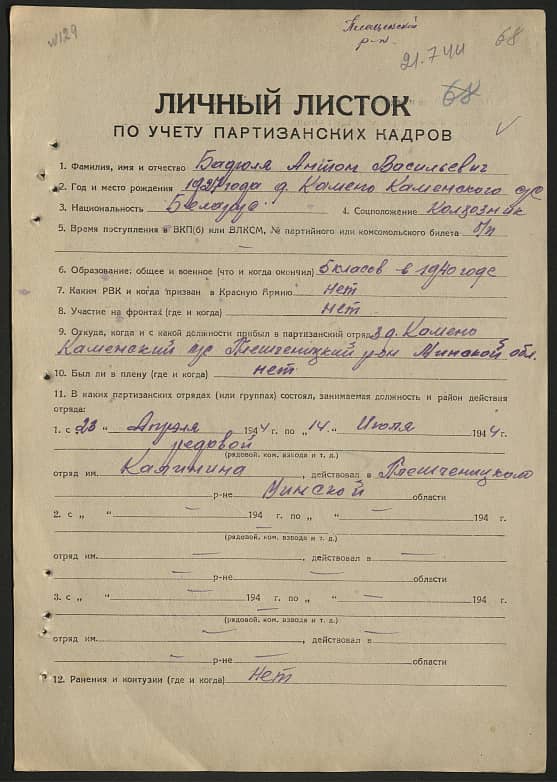 №129
Плещенский
р-н.
21.7.44
68
68
ЛИЧНЫЙ ЛИСТОК
ПО УЧЕТУ ПАРТИЗАНСКИХ КАДРОВ
1. Фамилия, имя и отчество Бадюля Антон Васильевич
2. Год и место рождения 1927 года д. Камено Каменского с/с
3. Национальность Беларус 4. Соцположение Колхозник
5. Время поступления в ВКП(б) или ВЛКСМ, № партийного или комсомольского билета б/п
6. Образование: общее и военное (что и когда окончил) 5 класов в 1940 годе
7. Каким РВК и когда призван в Красную Армию нет
8. Участие на фронтах (где и когда) нет
9. Откуда, когда и с какой должности прибыл в партизанский отряд з д. Камено
Каменский с/с Плещеницкий р-он Минской обл.
10. Был ли в плену (где и когда) нет
11. В каких партизанских отрядах (или группах) состоял, занимаемая должность и район действия
отряда:
1. с „23“ Апреля 1944 г. по „14“ Июля 1944 г.
редовой
(рядовой, ком. взвода и т. д.)
отряд им. Калинина, действовал в Плещеницком
р-не Минской области
2. с „ “ — 194 г. по „ “ — 194 г.
(рядовой, ком. взвода и т. д.)
отряд им. —, действовал в —
— р-не — области
3. с „ “ — 194 г. по „ “ — 194 г.
—
(рядовой, ком. взвода и т. д.)
отряд им. —, действовал в —
— р-не — области
12. Ранения и контузии (где и когда) Нет